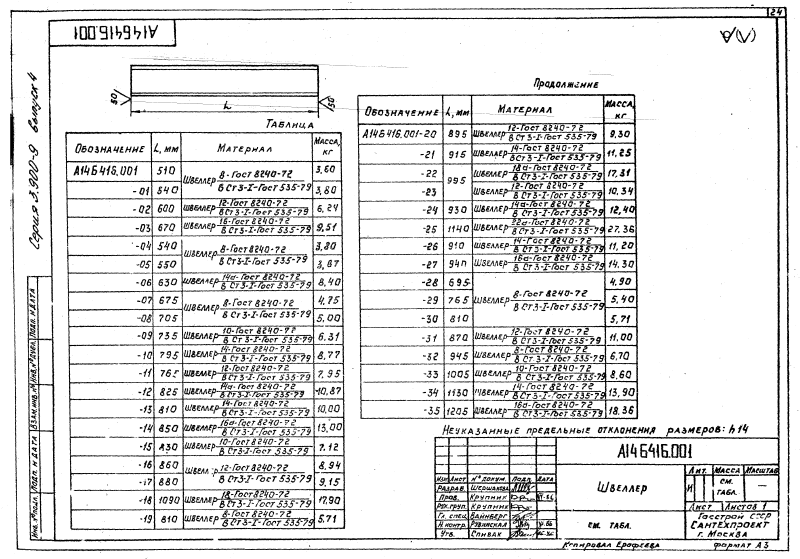 24
А14Б416.001
Серия 3.900-9 Выпуск 4
50
50
L
Таблица
Обозначение L, мм Материал Масса, кг
А14Б416.001 510 Швеллер 8-Гост 8240-72 В Ст3-I-Гост 535-79 3,60
-01 540 3,80
-02 600 Швеллер 12-Гост 8240-72 В Ст3-I-Гост 535-79 6,24
-03 670 Швеллер 16-Гост 8240-72 В Ст3-I-Гост 535-79 9,51
-04 540 Швеллер 8-Гост 8240-72 В Ст3-I-Гост 535-79 3,80
-05 550 3,87
-06 630 Швеллер 14а-Гост 8240-72 В Ст3-I-Гост 535-79 8,40
-07 675 Швеллер 8-Гост 8240-72 В Ст3-I-Гост 535-79 4,75
-08 705 5,00
-09 735 Швеллер 10-Гост 8240-72 В Ст3-I-Гост 535-79 6,31
-10 795 Швеллер 14-Гост 8240-72 В Ст3-I-Гост 535-79 8,77
-11 765 Швеллер 12-Гост 8240-72 В Ст3-I-Гост 535-79 7,95
-12 825 Швеллер 14а-Гост 8240-72 В Ст3-I-Гост 535-79 10,87
-13 810 Швеллер 14-Гост 8240-72 В Ст3-I-Гост 535-79 10,00
-14 850 Швеллер 16а-Гост 8240-72 В Ст3-I-Гост 535-79 13,00
-15 830 Швеллер 10-Гост 8240-72 В Ст3-I-Гост 535-79 7,12
-16 860 Швеллер 12-Гост 8240-72 В Ст3-I-Гост 535-79 8,94
-17 880 9,15
-18 1090 Швеллер 18-Гост 8240-72 В Ст3-I-Гост 535-79 17,90
-19 810 Швеллер 8-Гост 8240-72 В Ст3-I-Гост 535-79 5,71
Продолжение
Обозначение L, мм Материал Масса, кг
А14Б416.001-20 895 Швеллер 12-Гост 8240-72 В Ст3-I-Гост 535-79 9,30
-21 915 Швеллер 14-Гост 8240-72 В Ст3-I-Гост 535-79 11,25
-22 995 Швеллер 18а-Гост 8240-72 В Ст3-I-Гост 535-79 17,31
-23 Швеллер 12-Гост 8240-72 В Ст3-I-Гост 535-79 10,34
-24 930 Швеллер 14а-Гост 8240-72 В Ст3-I-Гост 535-79 12,40
-25 1140 Швеллер 22а-Гост 8240-72 В Ст3-I-Гост 535-79 27,36
-26 910 Швеллер 14-Гост 8240-72 В Ст3-I-Гост 535-79 11,20
-27 940 Швеллер 16а-Гост 8240-72 В Ст3-I-Гост 535-79 14,30
-28 695 4,90
-29 765 Швеллер 8-Гост 8240-72 В Ст3-I-Гост 535-79 5,40
-30 810 5,71
-31 670 Швеллер 12-Гост 8240-72 В Ст3-I-Гост 535-79 11,00
-32 945 Швеллер 8-Гост 8240-72 В Ст3-I-Гост 535-79 6,70
-33 1005 Швеллер 10-Гост 8240-72 В Ст3-I-Гост 535-79 8,60
-34 1130 Швеллер 14-Гост 8240-72 В Ст3-I-Гост 535-79 13,90
-35 1205 Швеллер 16а-Гост 8240-72 В Ст3-I-Гост 535-79 18,36
Неуказанные предельные отклонения размеров: h14
А14Б416.001
Изм Лист № докум. Подп. Дата
Разраб. Шершакова
Пров. Крупник
Рук. груп. Крупник
Гл. спец. Вайнберг
Н. контр. Рувинская
Утв. Спивак
Швеллер
см. табл.
Лит. Масса Масштаб
И см. табл. —
Лист Листов 1
Госстрой СССР
Сантехпроект
г. Москва
Копировал Ерофеева Формат А3
Инв. № подл. Подп. и дата Взам. инв. № Инв. № дубл. Подп. и дата